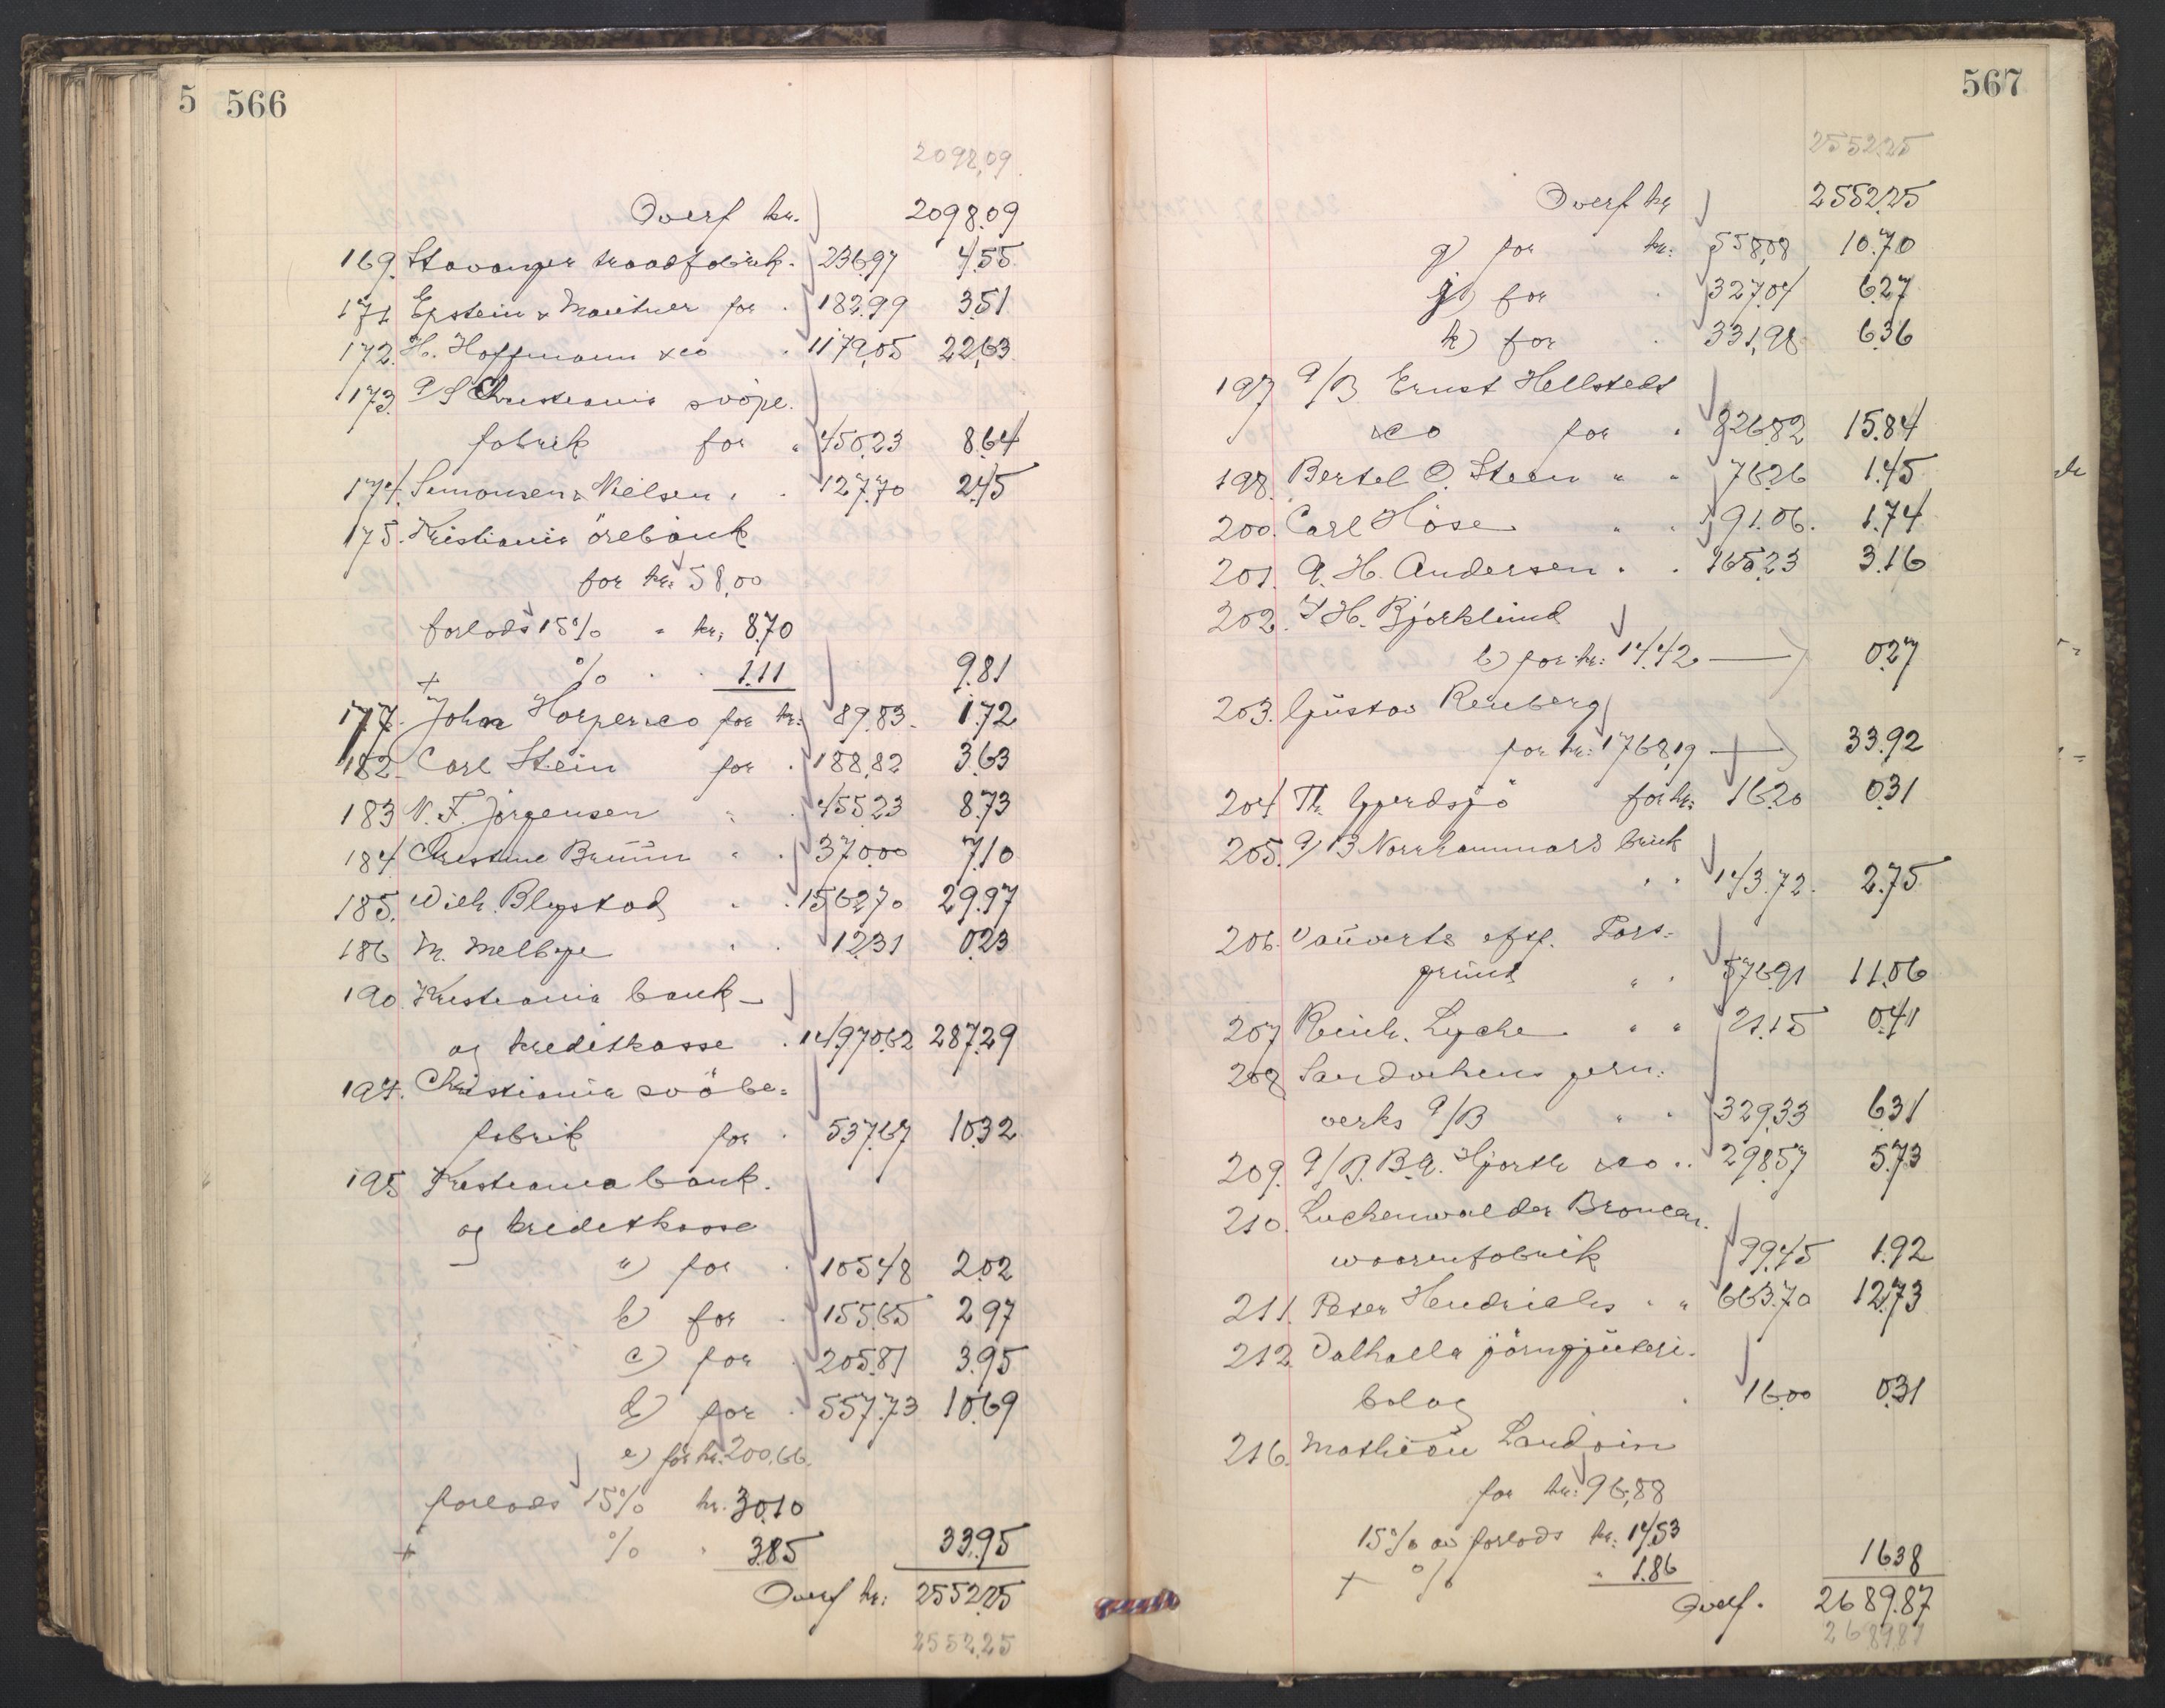 5 566
2098,09
Overf kr. 2098.09
169. Stavanger traadfabrik. 236.97 4.55
171 Epstein & Mautner for 182.99 3.51
172. H. Hoffmann & co 1179,05 22,63
173. A/S Christiania svöpe.
fabrik for " 450.23 8.64
174. Simonsen & Nielsen " 127.70 2.45
175. Kristiania örebank
for kr: 58,00
forlods 15% " kr; 8.70
+ % " 1.11 9.81
177. John Harper & co for kr: 89.83 1.72
182. Carl Stein for 188,82 3.63
183 N. F. Jörgensen " 455.23 8.73
184 Christine Bruun " 370.00 7.10
185. Wilh. Blystad " 1562.70 29.97
186 M. Melbye " 12.31 0.23
190. Kristiania bank-
og kreditkasse 14970.62 287.29
194. Christiania svöbe=
fabrik for 537.67 10.32
195 Kristiania bank.
og kreditkasse
a) for 105.48 2.02
b) for 155.65 2.97
c) for 205.81 3.95
d) for 557.73 10.69
e) for kr. 200,66.
forlods 15% kr. 30.10
+ % " 3.85 33.95
Overf kr: 2552.25
2552,25
567
2552.25
Overf kr 2552.25
g) for kr: 558,08 10.70
j) for 327.04 6.27
k) for 331,98 6.36
197 A/B Ernst Hellstedt
& co for " 826.82 15.84
198. Bertel O. Steen " " 76.26 1.45
200. Carl Höse " 91.06. 1.74
201. A. H. Andersen " 165.23 3.16
202. H. Bjorklund
b) for kr: 14.42 0.27
203. Gustav Renberg
for kr: 1768,19 33.92
204 Th. Gjerdsjö for kr: 16.20 0.31
205. A/B Norrhammars bruk
" " 143.72. 2.75
206. Vauverts eftf. Pors=
grund " " 576.91 11.06
207 Reinh. Lyche " " 21.15 0.41
208 Sandvikens jern=
verks A/B " " 329,33 6.31
209. A/B. B.A. Hjorth & co " 298.57 5.73
210. Luckenwalder Broncer.
waarenfabrik 99.45 1.92
211. Peter Hendrichs " " 663.70 12.73
212. Valhalla jörngjuteri.
bolag 16.00 0.31
216. Mathieu Landoin
for kr: 96,88
15% av forlods kr: 14.53
+ % " 1.86 16.38
Overf. 2689.87
2689,87